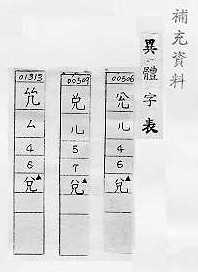 補充資料
異體字表
00506
兊
儿
4
6
兌▲
00509
兑
儿
5
7
兌▲
01313
厶
4
6
兌▲